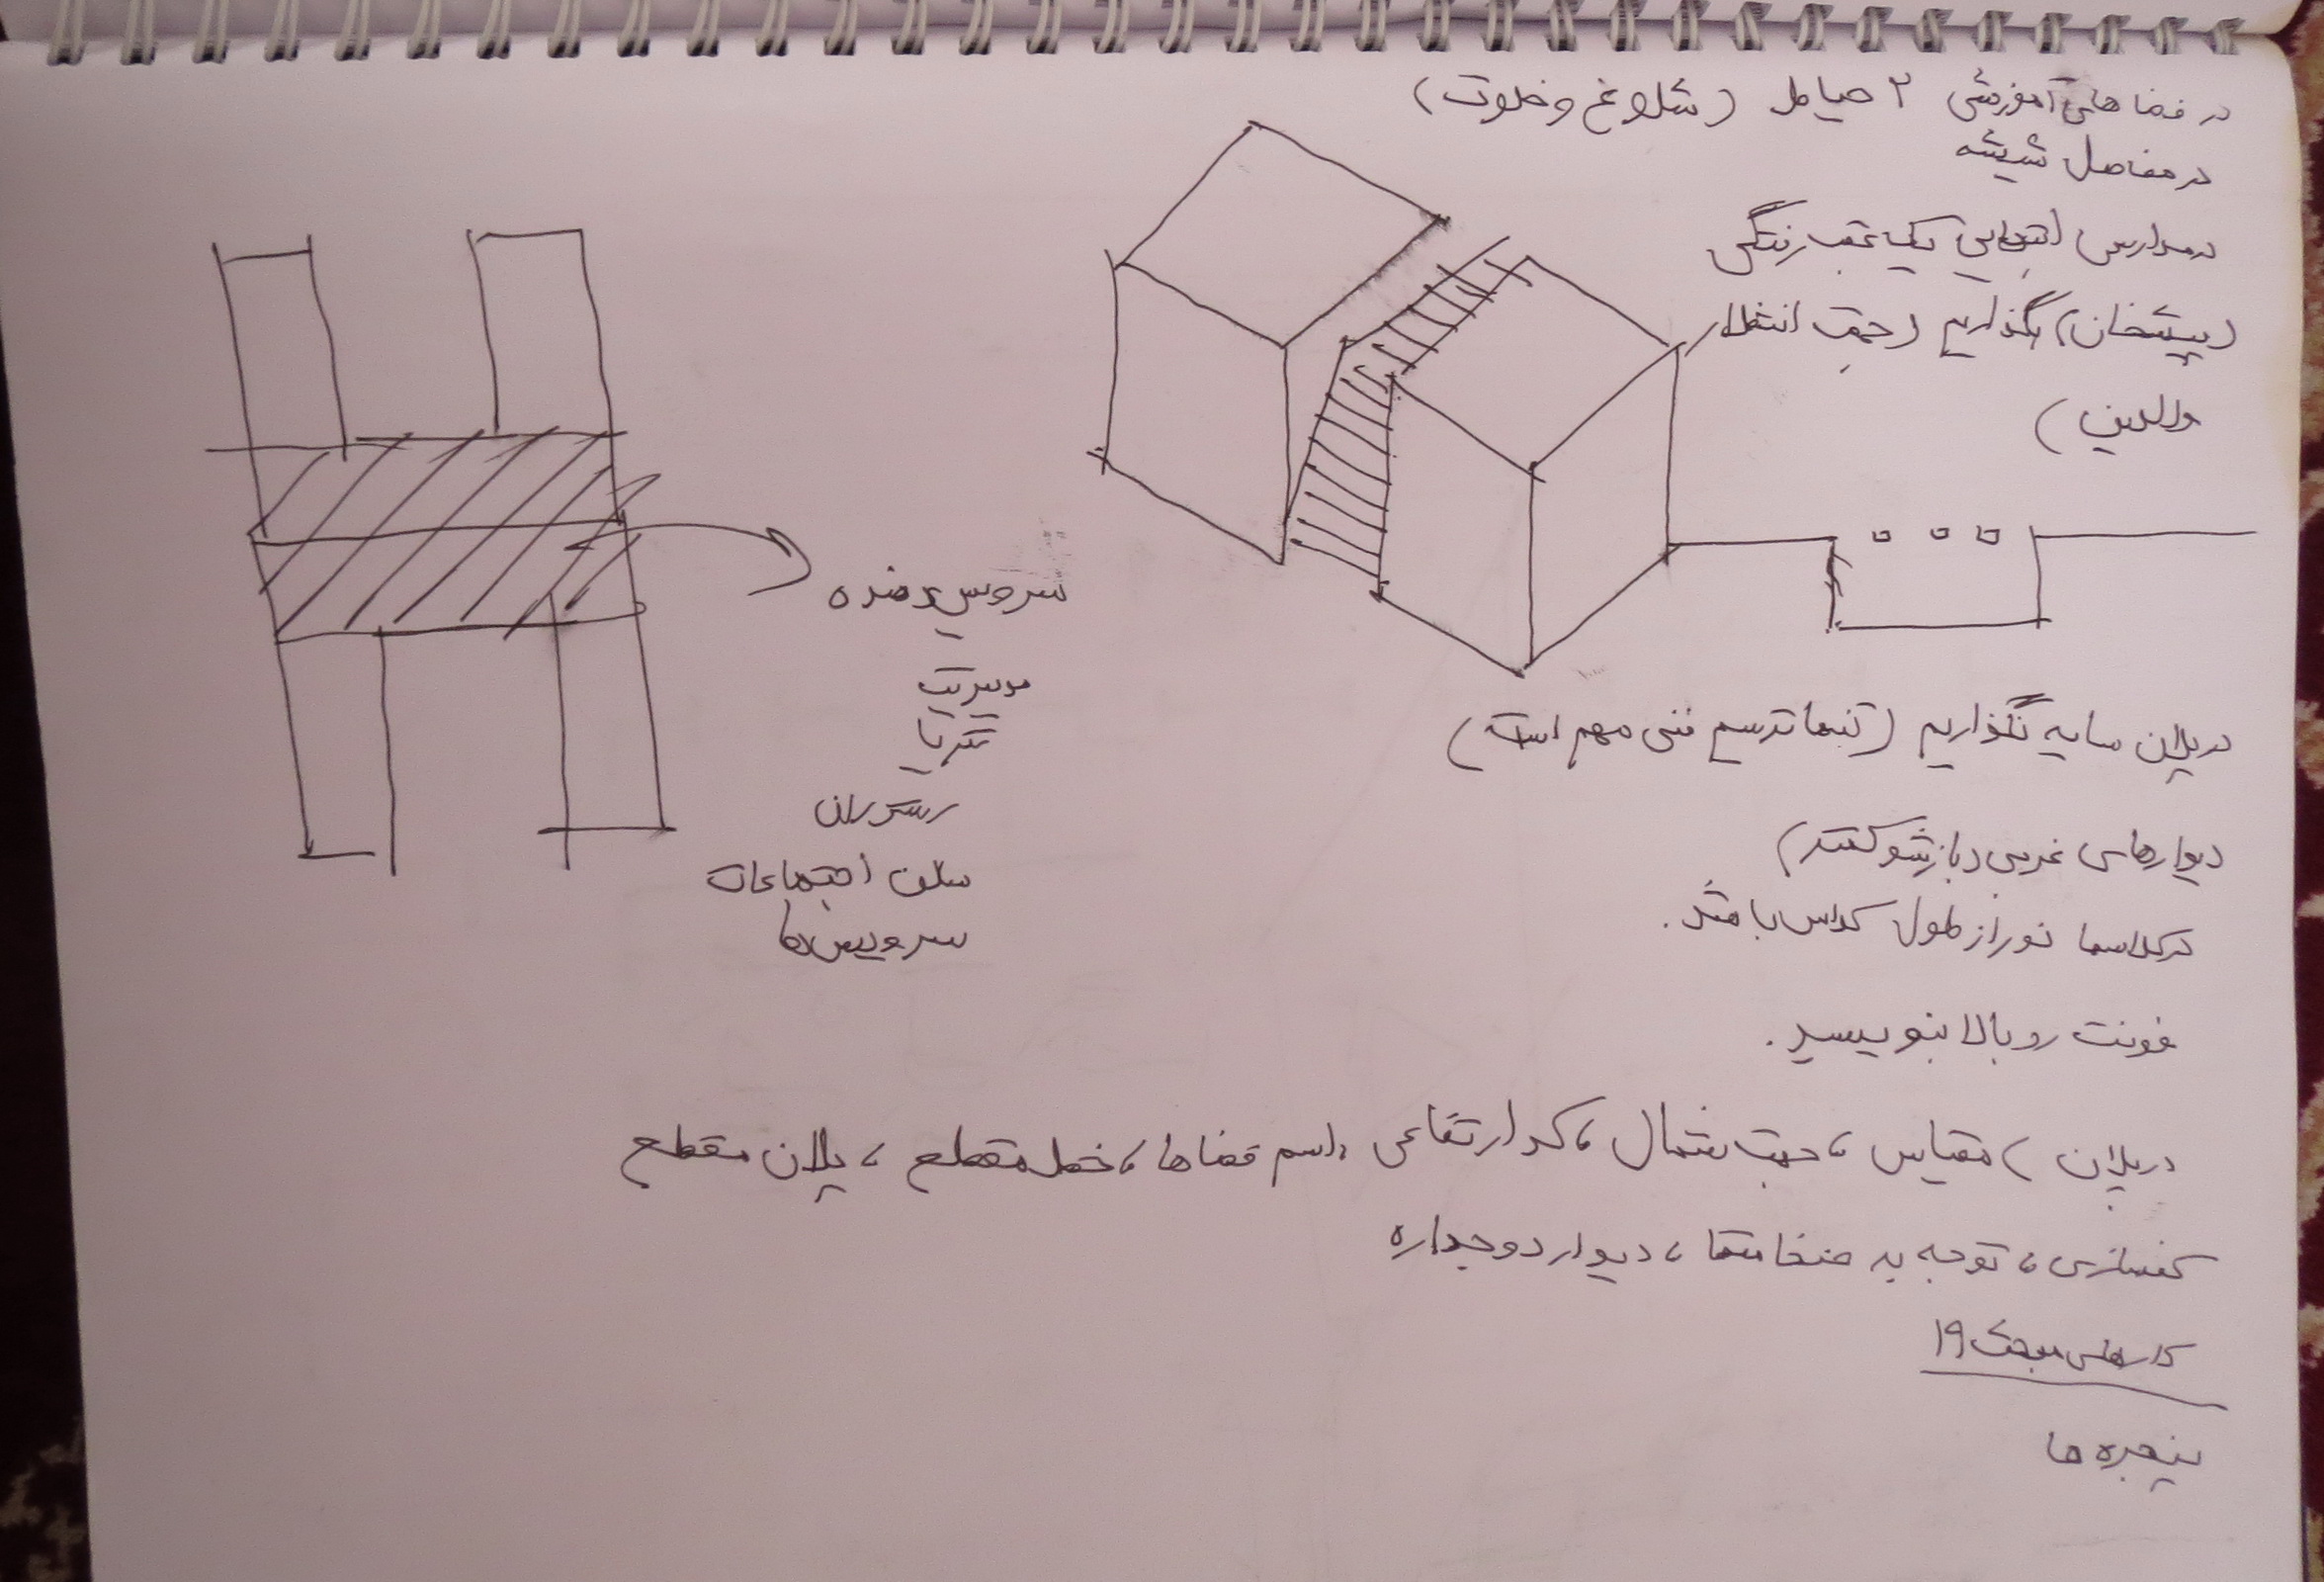 در فضاهای آموزشی ۲ حیاط (شلوغ و خلوت)
در مفاصل شیشه
در مدارس ابتدایی یک عقب زنتگی
(پیشخان) بگذاریم (جهت انتظار
والدین)
در پلان سایه نگذاریم (تنها ترسیم فنی مهم است)
دیوارهای غربی (بازشو کمتر)
در کلاسها نور از طول کلاس باشد.
فونت رو بالا بنویسید.
در پلان) مقیاس، جهت شمال، کد ارتفاعی، اسم فضاها، خط مقطع، پلان مقطع
کفسازی، توجه به ضخامتها، دیوار دوجداره
کارهای مبحث ۱۹
پنجره ها
سرویس دهنده
مدیریت
تریا
رستوران
سالن اجتماعات
سرویس ها